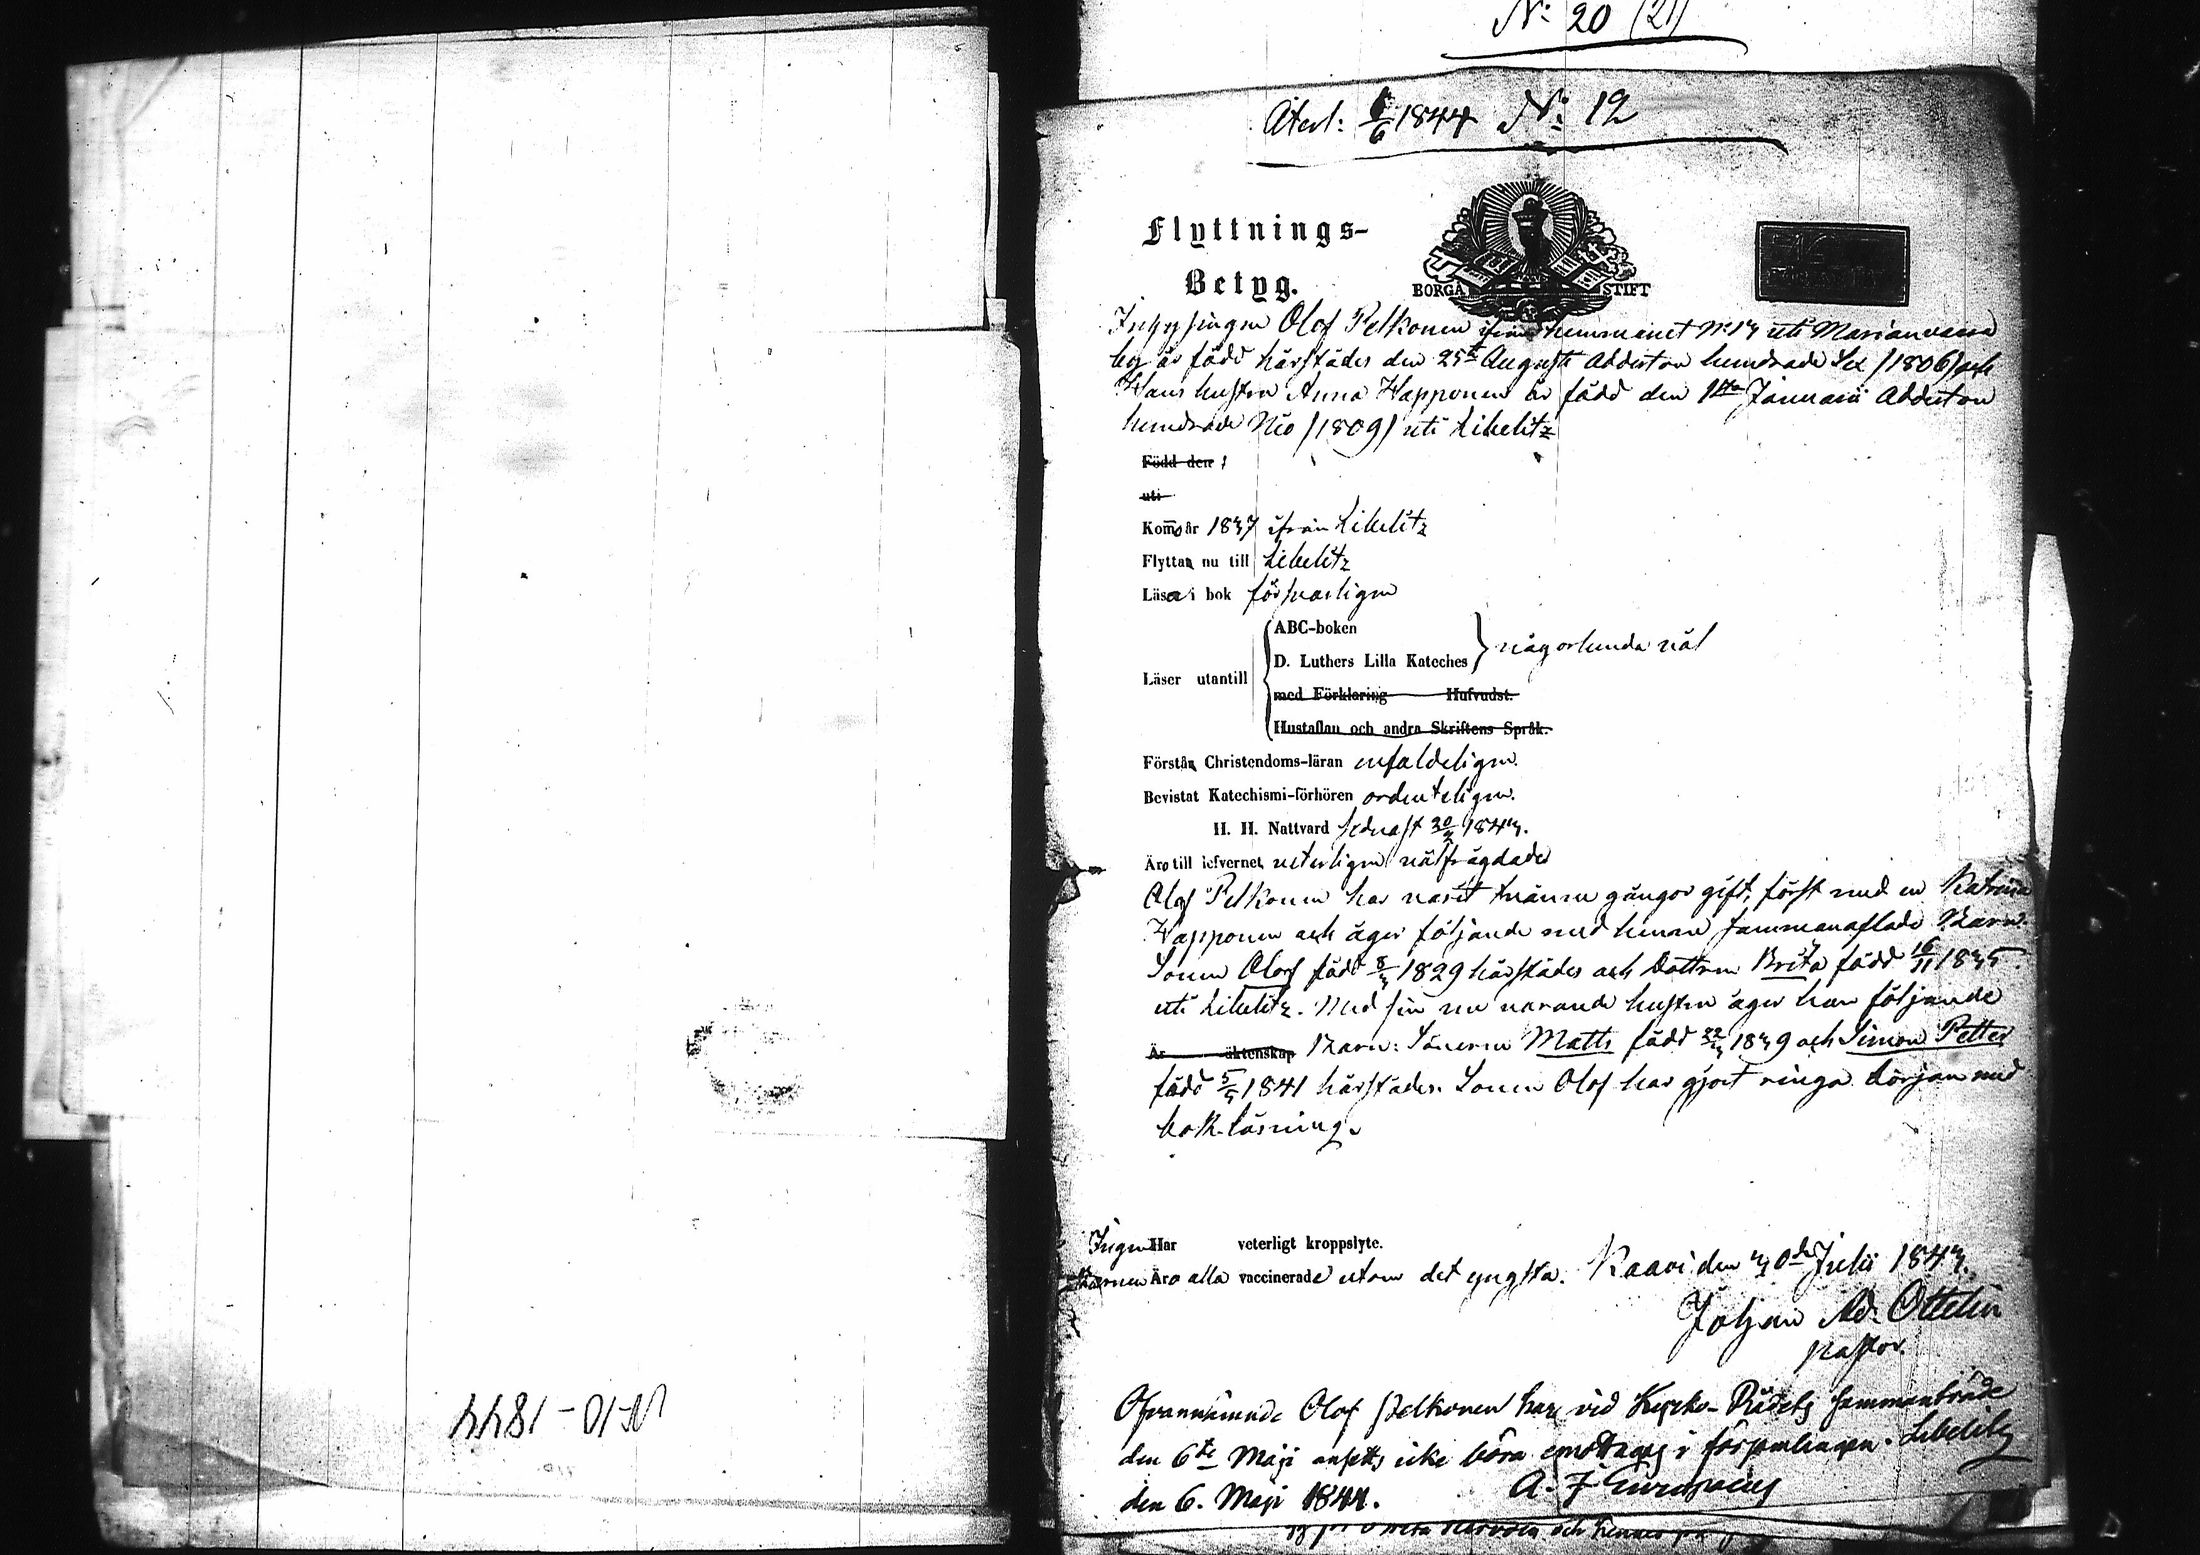 N: 20 (21)
Återl: 6/6 1844 N: 12
Flyttnings-
Betyg.
BORGÅ STIFT
Inhysingen Olof Pelkonen ifrån hemmanet N: 13 uti Marianvaara
by är född härstädes den 25te Augusti Adderton hundrade Sex (1806) och
Hans hustru Anna Happonen är född den 1sta Januarii Adderton
hundrade Nio (1809) uti Libelitz
Född den 1
uti
Komo år 1837 ifrån Libelitz
Flytta nu till Libelitz
Läsa i bok försvarligen
ABC-boken
D. Luthers Lilla Kateches någorlunda väl
Läser utantill
med Förklaring Hufvudst.
Hustaflan och andra Skriftens Språk.
Förstå Christendoms-läran enfaldeligen.
Bevistat Katechismi-förhören ordenteligen.
H. H. Nattvard sednast 30/2 1843.
Äro till lefvernet veterligen välfrägdade
Olof Pelkonen har varit tvänne gångor gift, först med en Katrina
Happonen och äger följande med henne sammanaflade Barn:
Sonen Olof född 8/3 1829 härstädes och Dottren Brita född 16/11 1835
uti Libelitz. Med sin nu varande hustru äger han följande
Är äktenskap Barn: Sönerne Matts född 22/3 1839 och Simon Petter
född 5/5 1841 härstädes. Sonen Olof har gjort ringa början med
bok-läsning.
Ingen Har veterligt kroppslyte.
Barnen Äro alla vaccinerade utom det yngsta. Kaavi den 30de Julii 1843.
Johan Ad. Ottelin
pastor.
Ofvannämnde Olof Pelkonen har vid Kyrko-Rådets sammanträde
den 6te Maji ansetts icke böra emottagas i församlingen. Libelitz
den 6. Maji 1844. A. J. Europaeus
och hennes
N-10-1844